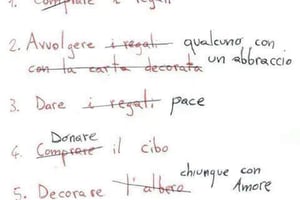 1. Comprare i regali
2. Avvolgere i regali qualcuno con
con la carta decorata un abbraccio
3. Dare i regali pace
Donare
4. Comprare il cibo
chiunque con
5. Decorare l'albero Amore